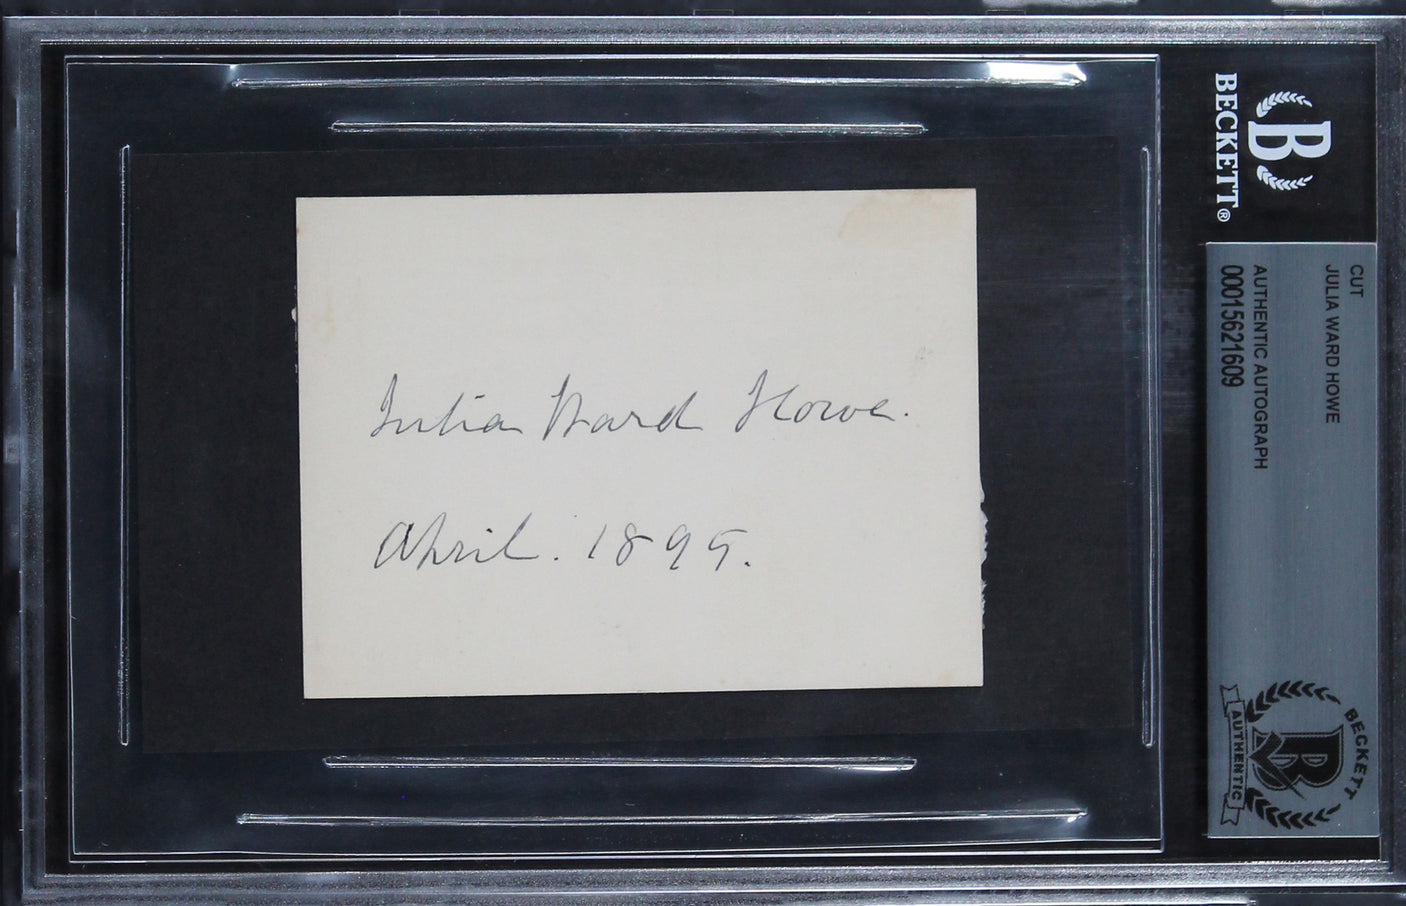 Julia Ward Howe.
April. 1895.
BECKETT®
B
CUT
JULIA WARD HOWE
AUTHENTIC AUTOGRAPH
00015621609
BECKETT
B
AUTHENTIC